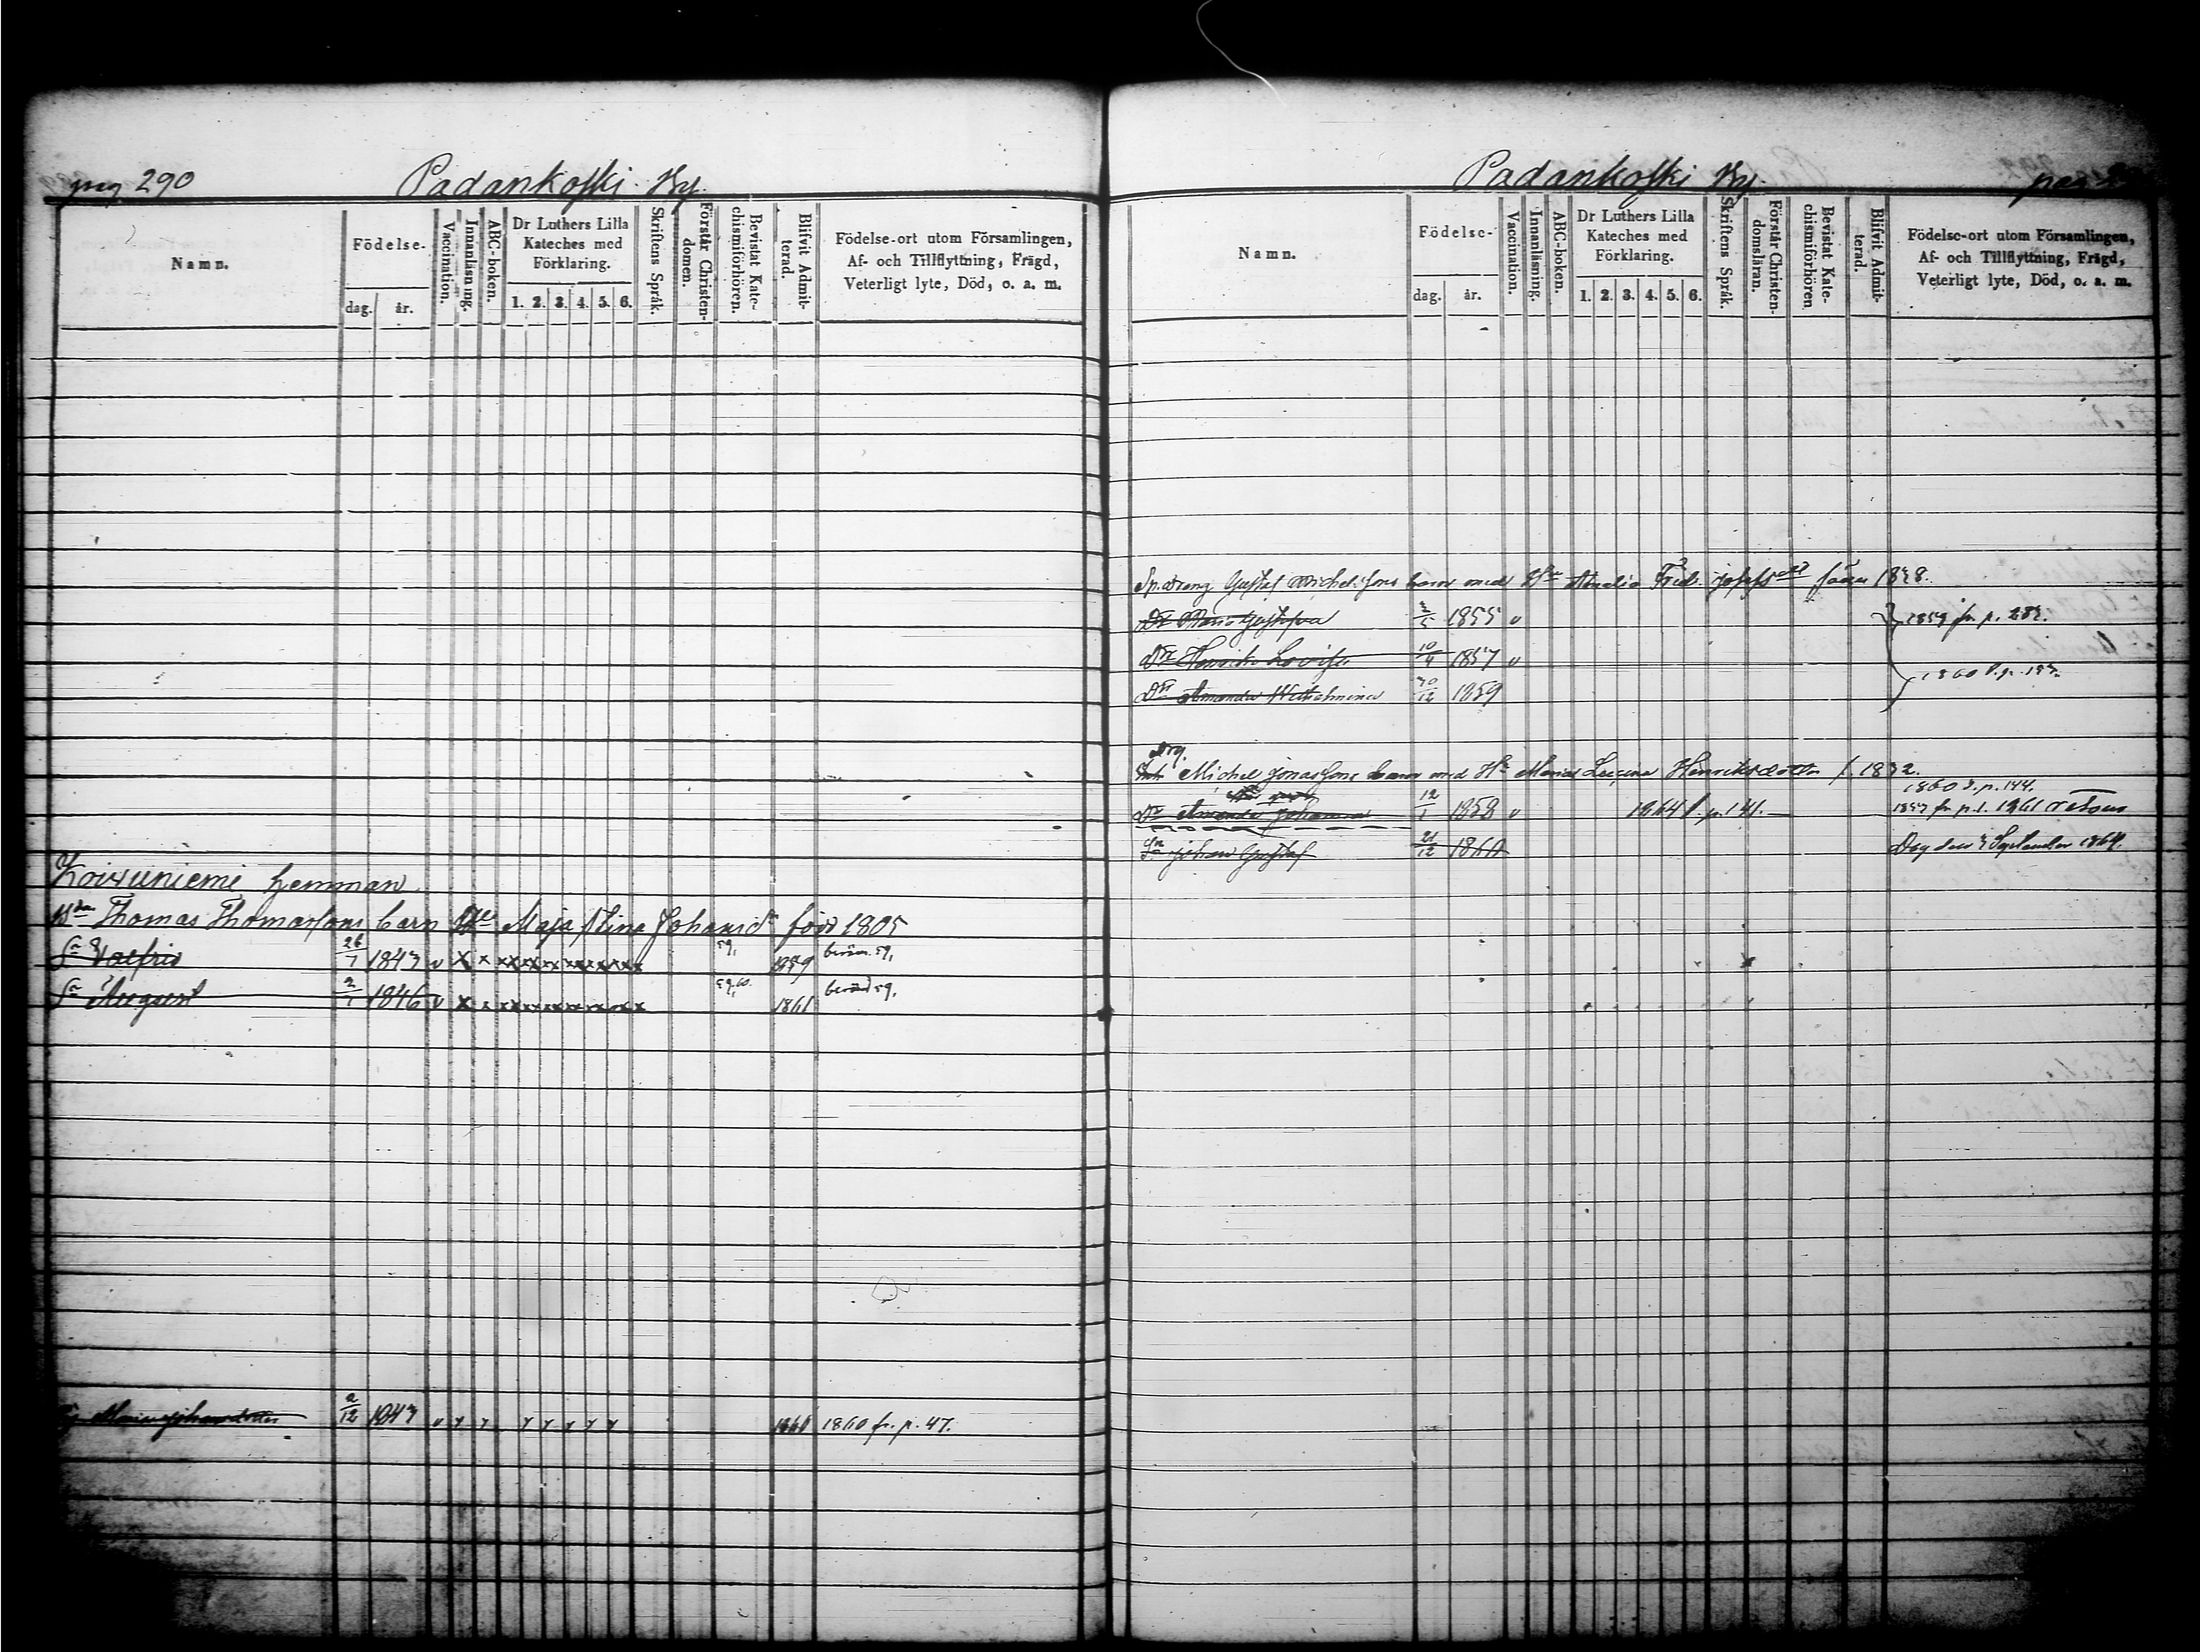 pag 290
Padankoski By.
Namn.
Födelse-
dag.
år.
Vaccination.
Innanläsning.
ABC-boken.
Dr Luthers Lilla
Kateches med
Förklaring.
1. 2. 3. 4. 5. 6.
Skriftens Språk.
Förstår Christen-
domen.
Bevistat Kate-
chismiförhören.
Blifvit Admit-
terad.
Födelse-ort utom Församlingen,
Af- och Tillflyttning, Frägd,
Veterligt lyte, Död, o. a. m.
Koivuniemi hemman
Thomas Thomassons barn Maja Stina Johansdr född 1805
Sn Valfrid 26/7 1843 v x x xxxxxxxxxxx 59, 1859
Sn August 2/7 1846 v x x xxxxxxxxxx 59,60. 1861
Maria Johansdotter 2/12 1843 1860 fr. p. 47.
Padankoski By.
Namn.
Födelse-
dag.
år.
Vaccination.
Innanläsning.
ABC-boken.
Dr Luthers Lilla
Kateches med
Förklaring.
1. 2. 3. 4. 5. 6.
Skriftens Språk.
Förstår Christen-
domsläran.
Bevistat Kate-
chismiförhören
Blifvit Admit-
terad.
Födelse-ort utom Församlingen,
Af- och Tillflyttning, Frägd,
Veterligt lyte, Död, o. a. m.
Gustaf Michelssons barn med Josefsdr 1828.
Dr Maria Gustafva 1855 v 1859 fr p.
Dr Lovisa 10/4 1857 v
1860
Dr Amanda Wilhelmina 30/12 1859
Drg.
Michel Jonassons barn med Maria Henriksdotter f. 1832.
1860 p. 144.
Dr Amanda Johanna 12/1 1858 v 1864 p. 141.
Sn Johan Gustaf 21/12 1860 September 1864.